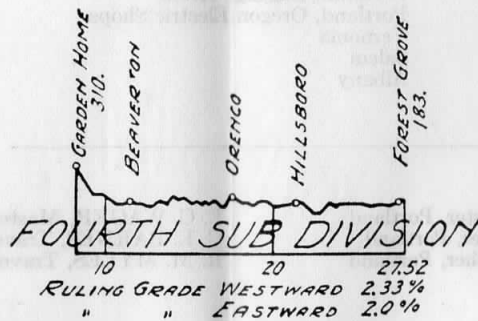 Portland, Oregon Electric Shops
GARDEN HOME
310.
BEAVERTON
ORENCO
HILLSBORO
FOREST GROVE
183.
FOURTH SUB DIVISION
10 20 27.52
RULING GRADE WESTWARD 2.33%
" " EASTWARD 2.0%